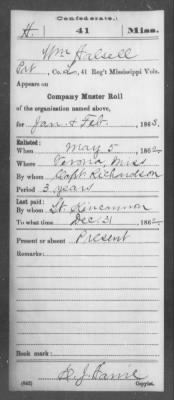 Confederate.
H. 41 Miss.
Wm Halsell
Pvt, Co. , 41 Reg't Mississippi Vols.
Appears on
Company Muster Roll
of the organization named above,
for Jan & Feb, 1863.
Enlisted:
When May 5, 1862.
Where Verona, Miss
By whom Capt. Richardson
Period 3 years
Last paid:
By whom Lt. Kincannon
To what time Dec. 31, 1862.
Present or absent Present
Remarks:
Book mark:
(642) Copyist.